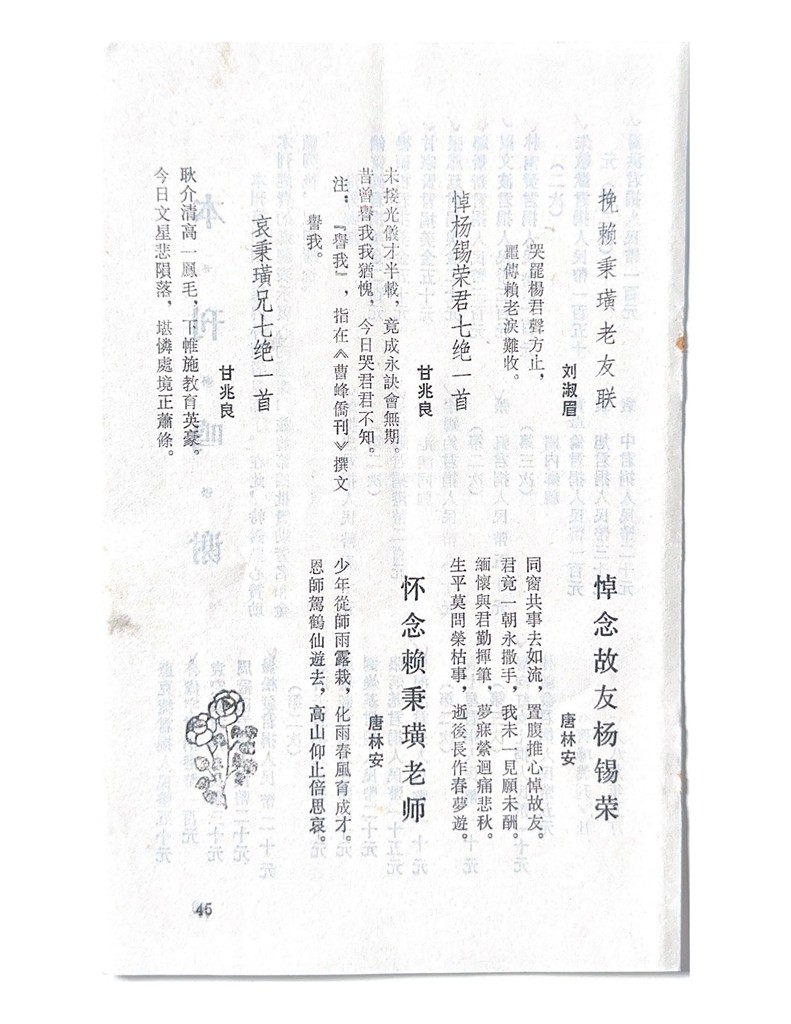 挽赖秉璜老友联
刘淑眉
哭罷楊君聲方止，
噩傳賴老淚難收。
悼杨锡荣君七绝一首
甘兆良
未接光儀才半載，竟成永訣會無期。
昔曾譽我我猶愧，今日哭君君不知。
注：『譽我』，指在《曹峰僑刊》撰文
譽我。
哀秉璜兄七绝一首
甘兆良
耿介清高一鳳毛，下帷施教育英豪。
今日文星悲隕落，堪憐處境正蕭條。
悼念故友杨锡荣
唐林安
同窗共事去如流，置腹推心悼故友。
君竟一朝永撒手，我未一見願未酬。
緬懷與君勤揮筆，夢寐縈迴痛悲秋。
生平莫問榮枯事，逝後長作春夢遊。
怀念赖秉璜老师
唐林安
少年從師雨露栽，化雨春風育成才。
恩師駕鶴仙遊去，高山仰止倍思哀。
46